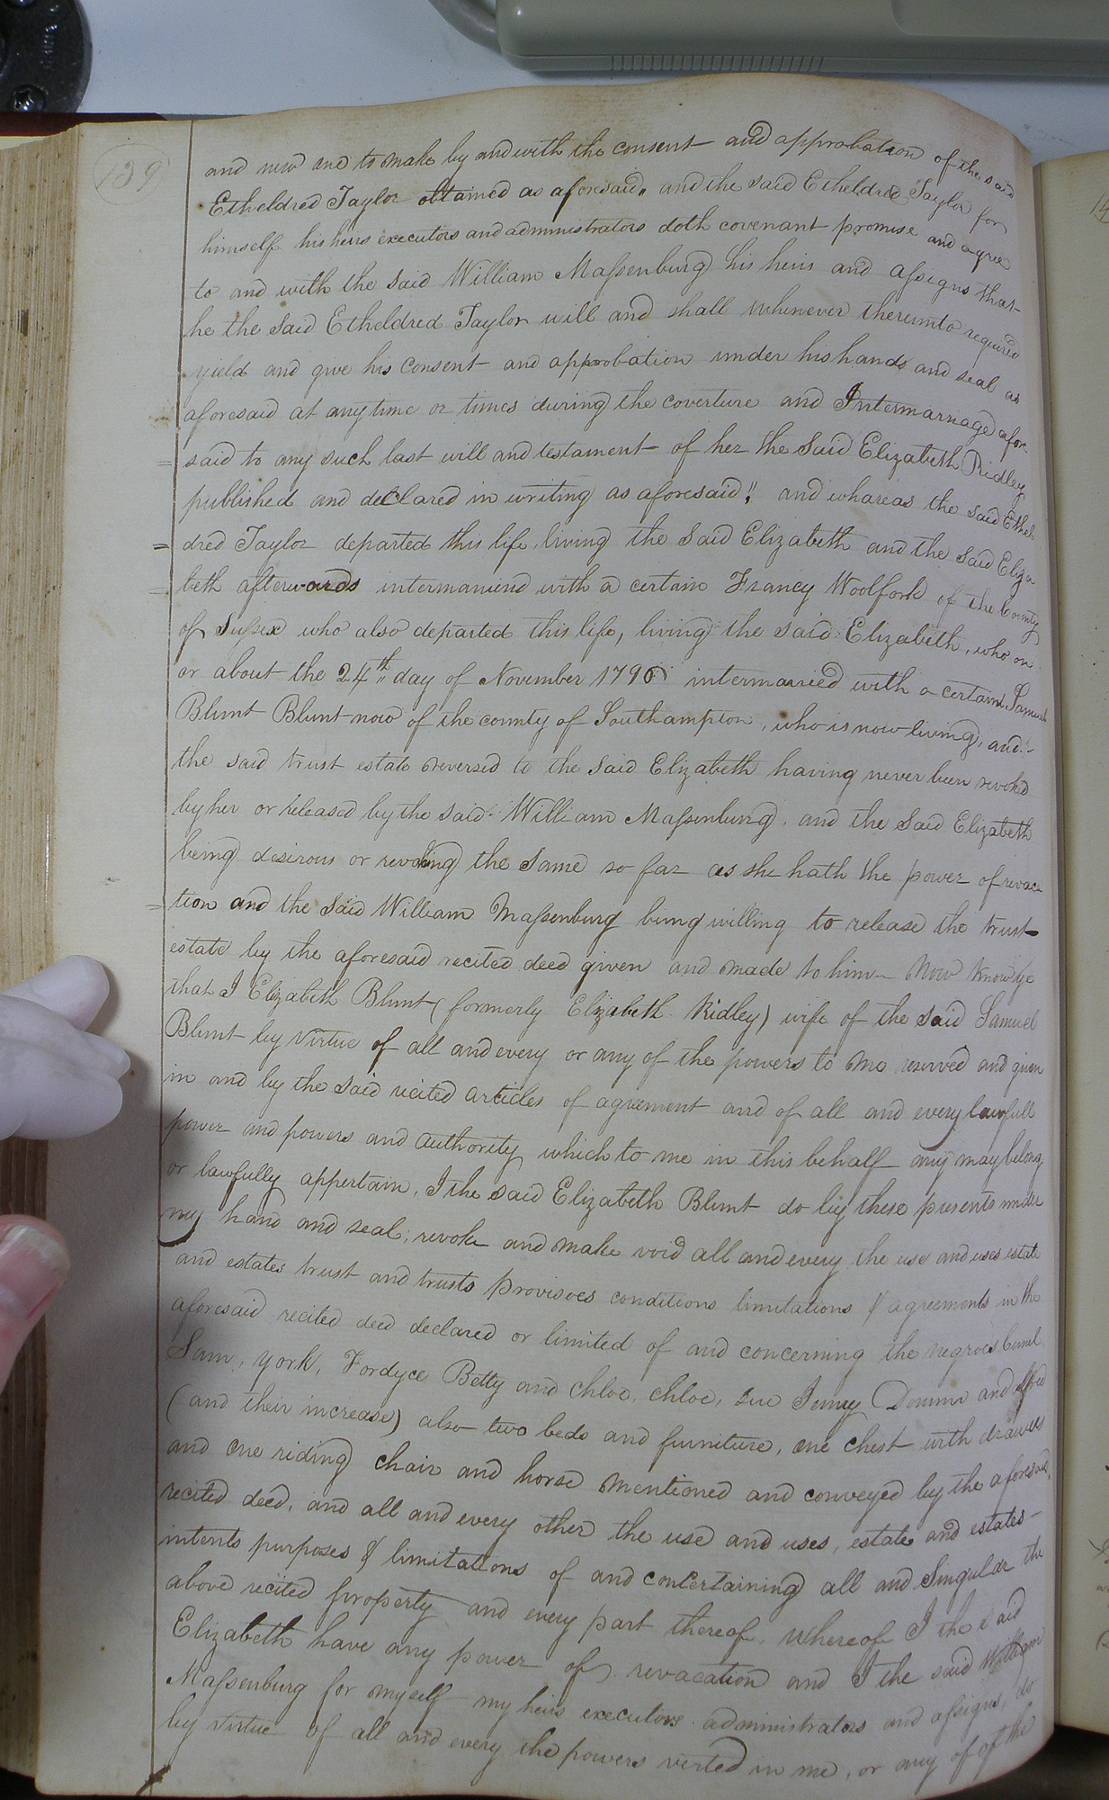 139
and new one to make by and with the consent and approbation of the said
Etheldred Taylor obtained as aforesaid, and the said Etheldred Taylor for
himself his heirs executors and administrators doth covenant promise and agree
to and with the said William Maſsenburg his heirs and aſsigns that
he the said Etheldred Taylor will and shall whenever thereunto required
yield and give his consent and approbation under his hands and seal as
aforesaid at any time or times during the coverture and Intermarriage afor
=said to any such last will and testament of her the said Elizabeth Ridley
published and declared in writing as aforesaid, and whareas the said Ethel
=dred Taylor departed this life, living the said Elizabeth and the said Eliza
=beth afterwards intermarried with a certain Francy Woolfork of the County
of Suſsex who also departed this life, living the said Elizabeth, who on
or about the 24th day of November 1790 intermarried with a certain Samuel
Blunt Blunt now of the county of Southampton, who is now living, and
the said trust estate reversed to the said Elizabeth having never been revokd
by her or released by the said William Maſsenburg, and the said Elizabeth
being desirous or revoking the same so far as she hath the power of revoca
=tion and the said William Maſsenburg being willing to release the trust
estate by the aforesaid recited deed given and made to him - Now know ye
that I Elizabeth Blunt (formerly Elizabeth Ridley) wife of the said Samuel
Blunt by virtue of all and every or any of the powers to me reserved and given
in and by the said recited articles of agreement and of all and every lawfull
power and powers and authority which to me in this behalf any may belong
or lawfully appertain, I the said Elizabeth Blunt do by these presents under
my hand and seal, revoke and make void all and every the use and uses estate
and estates trust and trusts provisoes conditions limitations & agreements in the
aforesaid recited deed declared or limited of and concerning the negroes
Sam, York, Fordyce Betty and Chloe, Chloe, Sue Jenny and
(and their increase) also two beds and furniture, one chest with drawers
and one riding chair and horse mentioned and conveyed by the aforesaid
recited deed, and all and every other the use and uses, estate and estates
intents purposes & limitations of and concertaining all and Singular the
above recited property and every part thereof, whereof I the said
Elizabeth have any power of revacation and I the said William
Maſsenburg for myself my heirs executors administrators and aſsigns, do
by virtue of all and every the powers vested in me, or any of of the